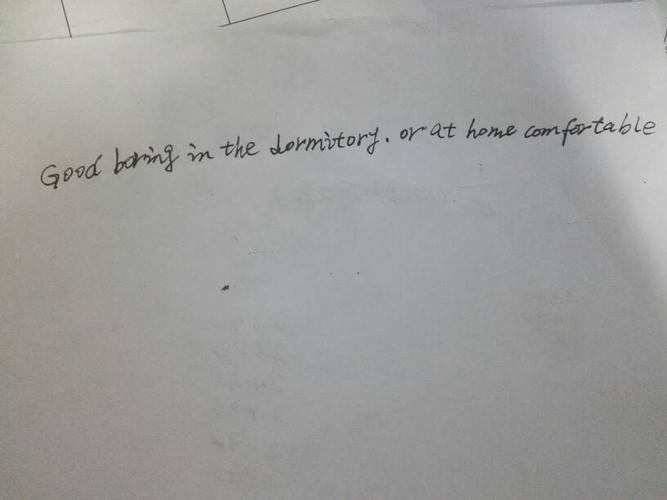 Good boring in the dormitory. or at home comfortable